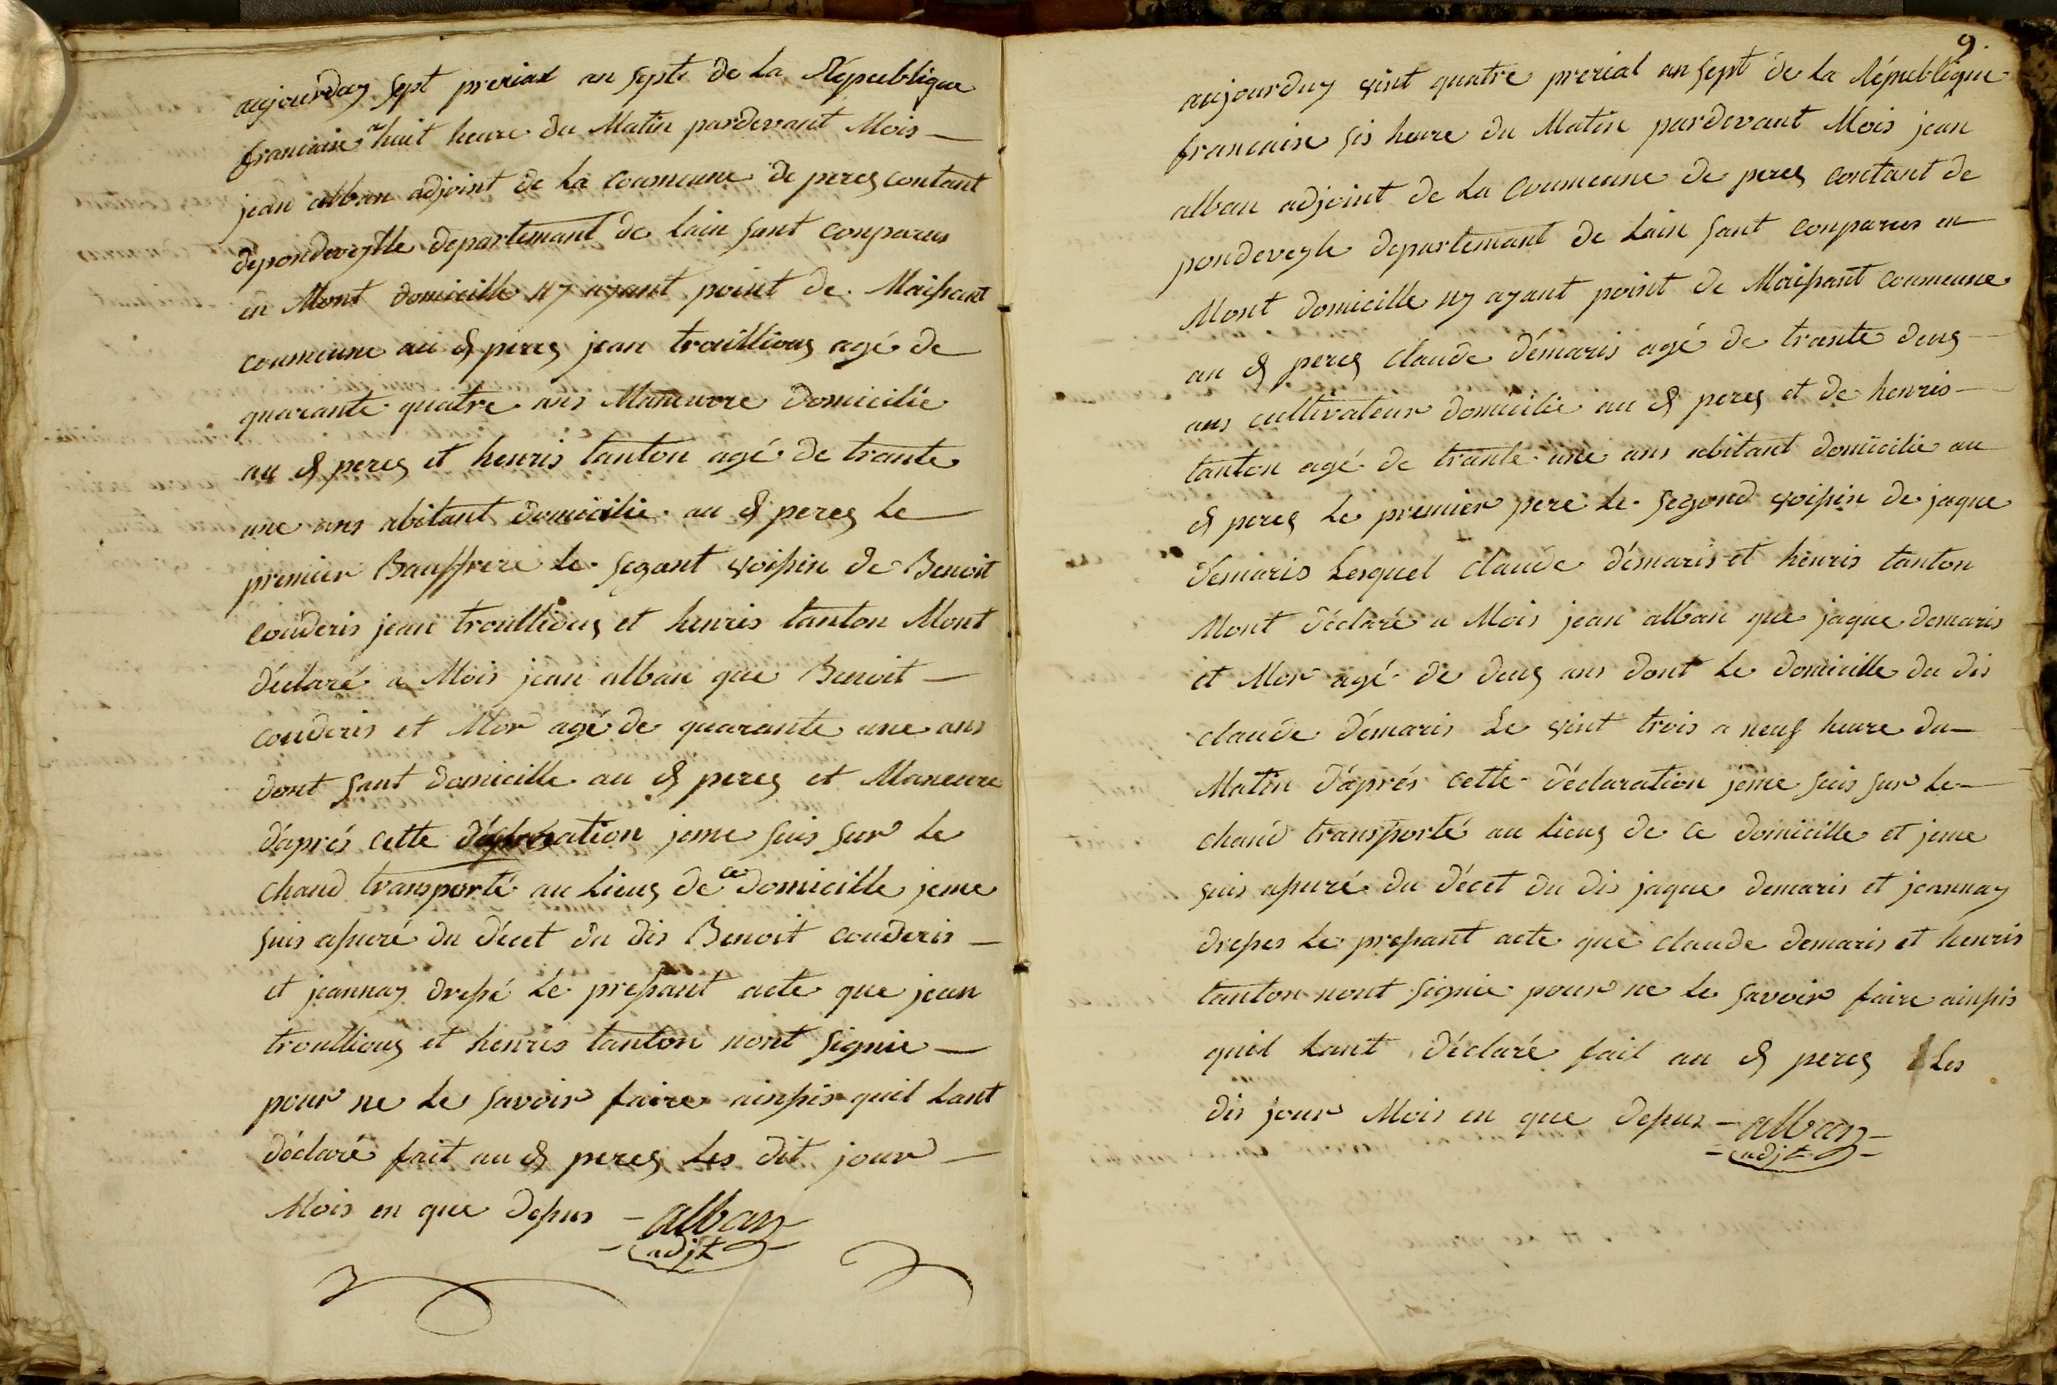 aujourduy sept prerial an septe de La République
francaise a huit heure du Matin pardevant Mois
jean alban adjoint de La Coumeune de perez contant
depondeveylle departemant de Lain sont conparus
en Mont domicille ny ayant point de Maisant
coumeune au S perez jean trouillious agé de
quarante quatre ans Maneuvre Domicilié
au S perez et henris tanton agé de trante
une ans abitant domicilie au S perez Le
premier Bauffrere Le segant voisin de Benoit
couderis jean trouillious et henris tanton Mont
déclaré a Mois jean alban que Benoit
couderis et Mor agé de quarante une ans
dont sant domicille au S perez et Maneuvre
d'aprés cette déclaration jeme suis sur Le
Chand transporté au Lieuz de ce domicille jeme
suis asuré du décet du dis Benoit couderis
et jeannay dressé Le pressant acte que jean
trouillious et henris tanton nont signie
pour ne Le savoir faire ainsis quil Lant
déclaré fait au S perez Les dit jour
Mois en que desus alban
adjt
9.
aujourduy vint quatre prerial an sept de La République
francaise sis heure du Matin pardevant Mois jean
alban adjoint de La Coumeune de perez contant de
pondeveyle departemant de Lain sont conparus en
Mont domicille ny ayant point de Maisant coumeune
au S perez Claude démaris agé de trante deuz
ans cultivateur domicilie au S perez et de henris
tanton agé de trante une ans abitant domicilie au
S perez Le premier pere Le segond voisin de jaque
démaris Lesquel Claude démaris et henris tanton
Mont déclaré a Mois jean alban que jaque demaris
et Mor agé de deuz ans dont Le domicille du dis
claude démaris Le vint trois a neuf heure du
Matin d'aprés cette déclaration jeme suis sur Le
chand transporté au Lieuz de ce domicille et jeme
suis asuré du décet du dis jaque demaris et jeannay
dresses Le pressant acte que claude demaris et henris
tanton nont signie pour ne Le savoir faire ainsis
quil Lant déclaré fait au S perez Les
dis jour Mois en que desus alban
adjt